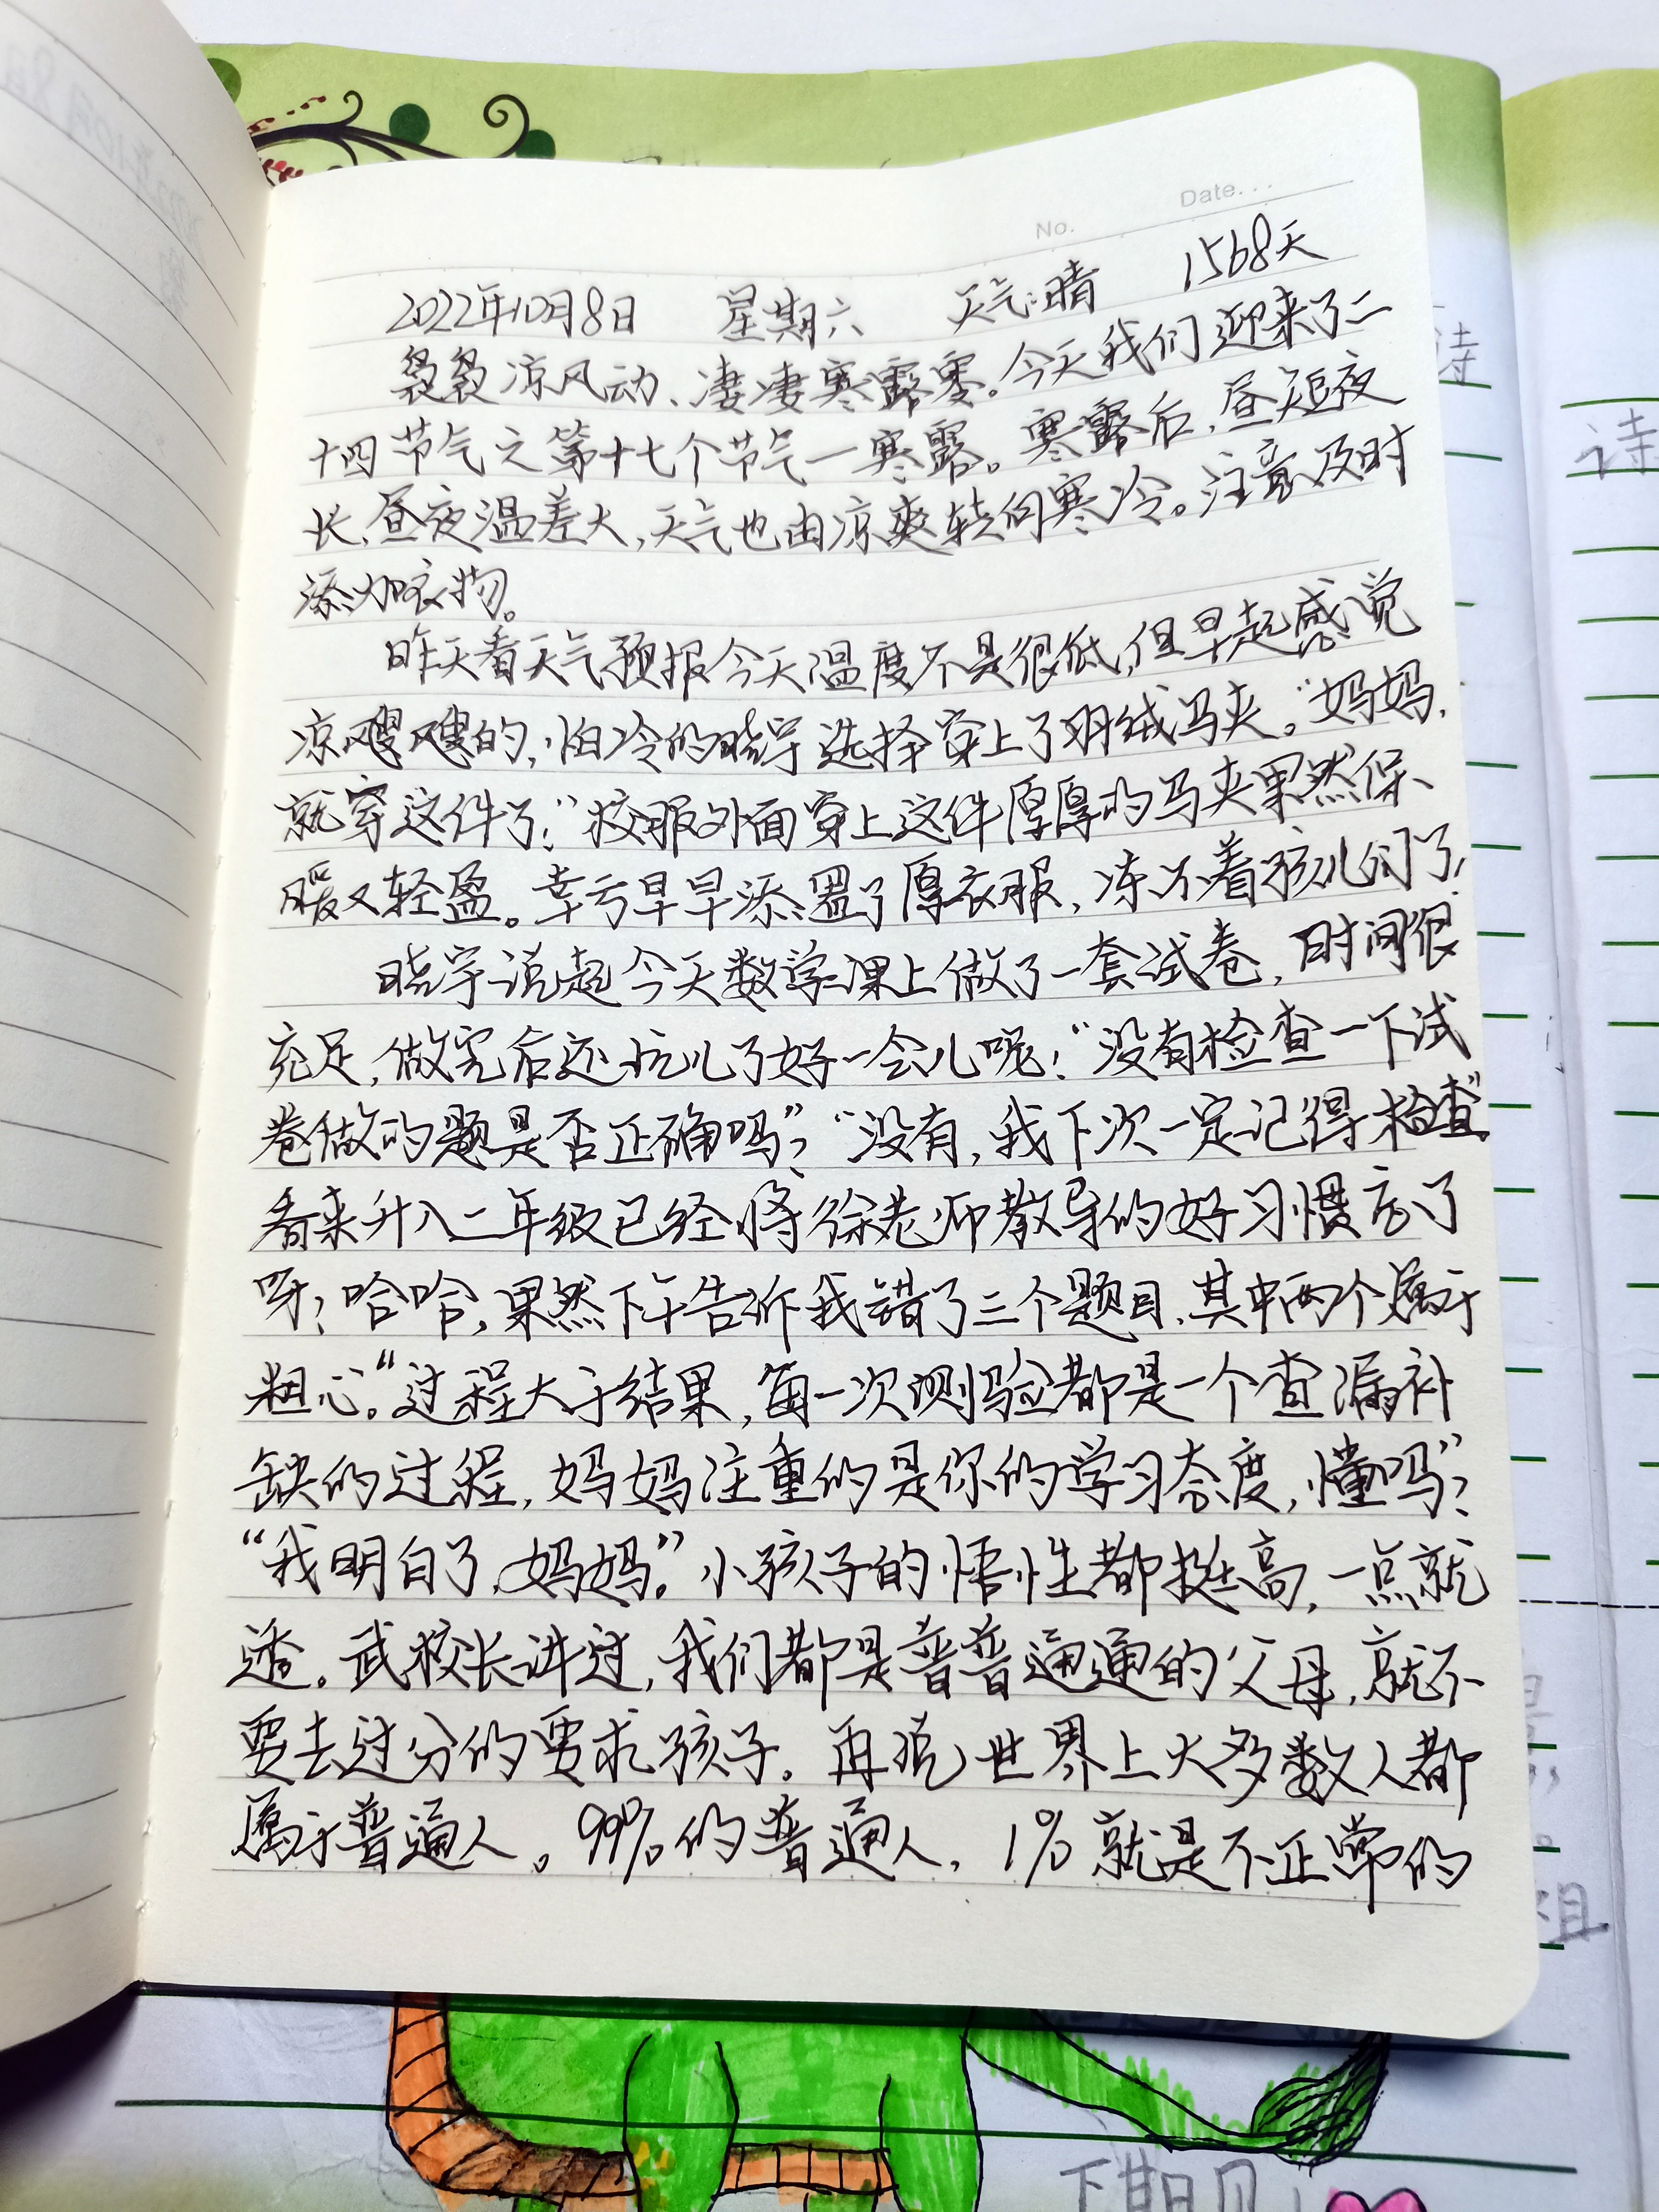 No.
Date...
2022年10月8日 星期六 天气:晴 1568天
袅袅凉风动、凄凄寒露零。今天我们迎来了二
十四节气之第十七个节气一寒露。寒露后，昼短夜
长、昼夜温差大，天气也由凉爽转向寒冷。注意及时
添加衣物。
昨天看天气预报今天温度不是很低，但早起感觉
凉飕飕的，怕冷的晓宇选择穿上了羽绒马夹。“妈妈，
就穿这件了！”校服外面穿上这件厚厚的马夹果然保
暖又轻盈。幸亏早早添置了厚衣服，冻不着孩儿们了！
晓宇说起今天数学课上做了一套试卷，时间很
充足，做完后还玩儿了好一会儿呢！“没有检查一下试
卷做的题是否正确吗”？“没有，我下次一定记得检查”。
看来升入二年级已经将徐老师教导的好习惯忘了
呀！哈哈，果然下午告诉我错了三个题目，其中两个属于
粗心。“过程大于结果，每一次测验都是一个查漏补
缺的过程，妈妈注重的是你的学习态度，懂吗”？
“我明白了，妈妈。”小孩子的悟性都挺高，一点就
透。武校长讲过，我们都是普普通通的父母，就不
要去过分的要求孩子。再说世界上大多数人都
属于普通人。99%的普通人，1%就是不正常的
诗
诗
下期见!